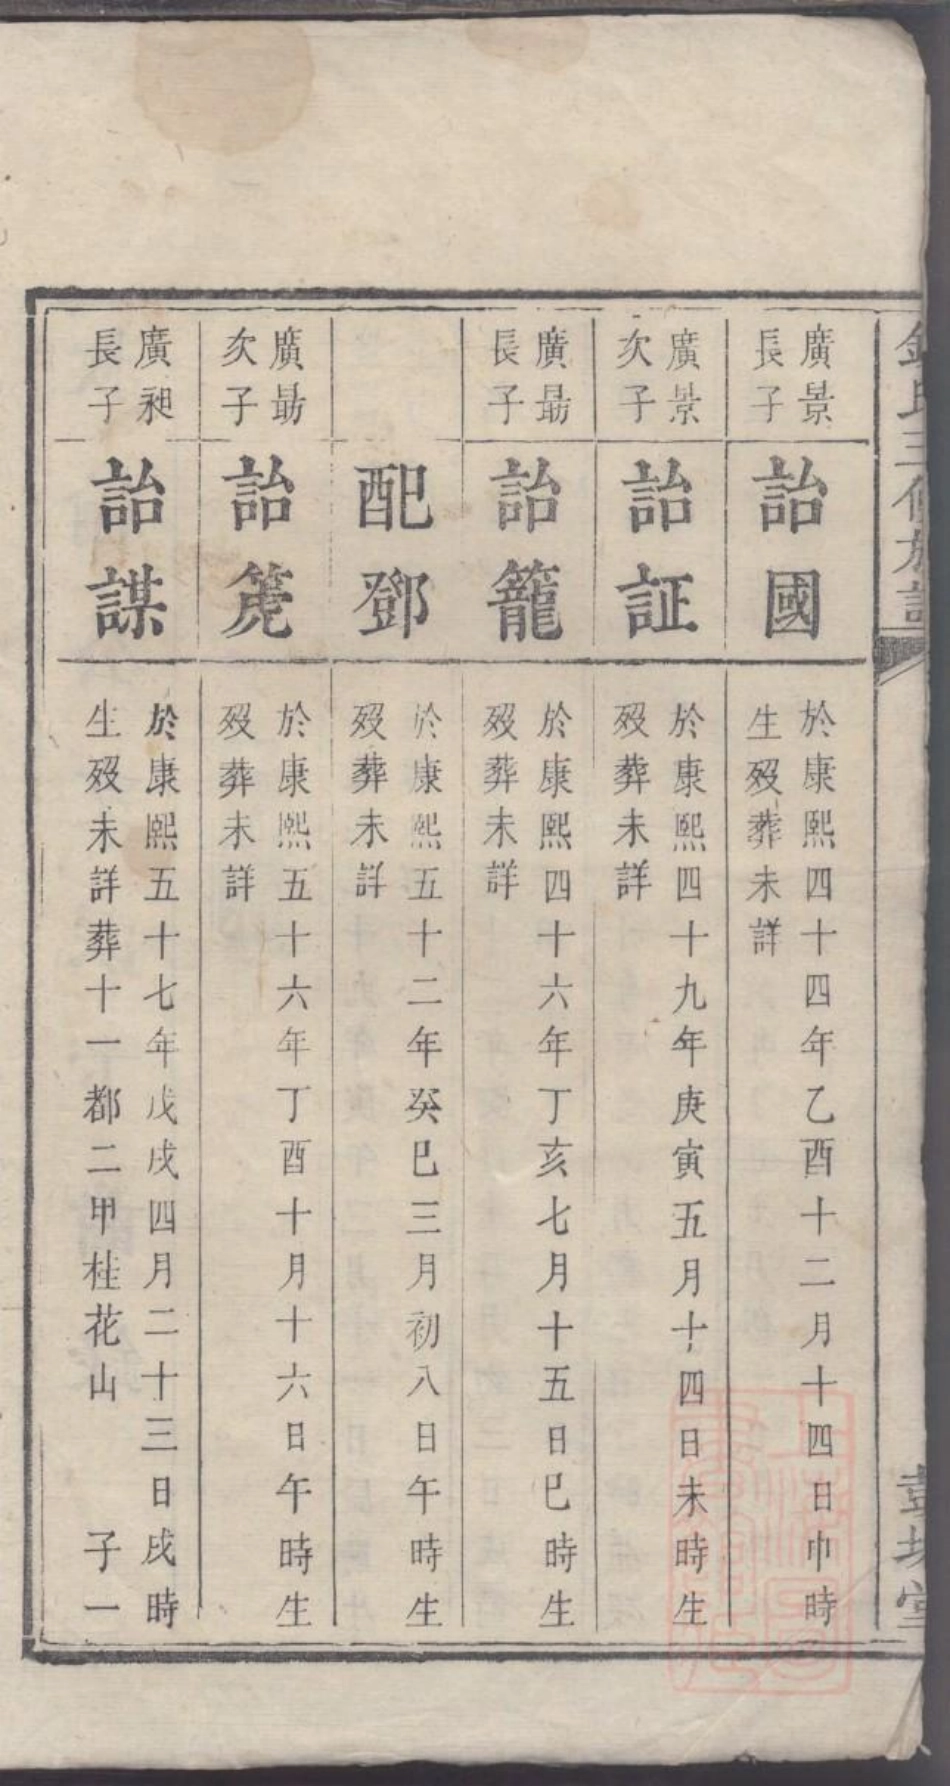 氏三修族譜
堂
廣景
長子
詒國
於康熙四十四年乙酉十二月十四日巾時
生歿葬未詳
廣景
次子
詒証
於康熙四十九年庚寅五月十四日未時生
歿葬未詳
廣勗
長子
詒籠
於康熙四十六年丁亥七月十五日巳時生
歿葬未詳
配鄧
於康熙五十二年癸巳三月初八日午時生
歿葬未詳
廣勗
次子
詒箎
於康熙五十六年丁酉十月十六日午時生
歿葬未詳
廣昶
長子
詒謀
於康熙五十七年戊戌四月二十三日戌時
生歿未詳葬十一都二甲桂花山 子一